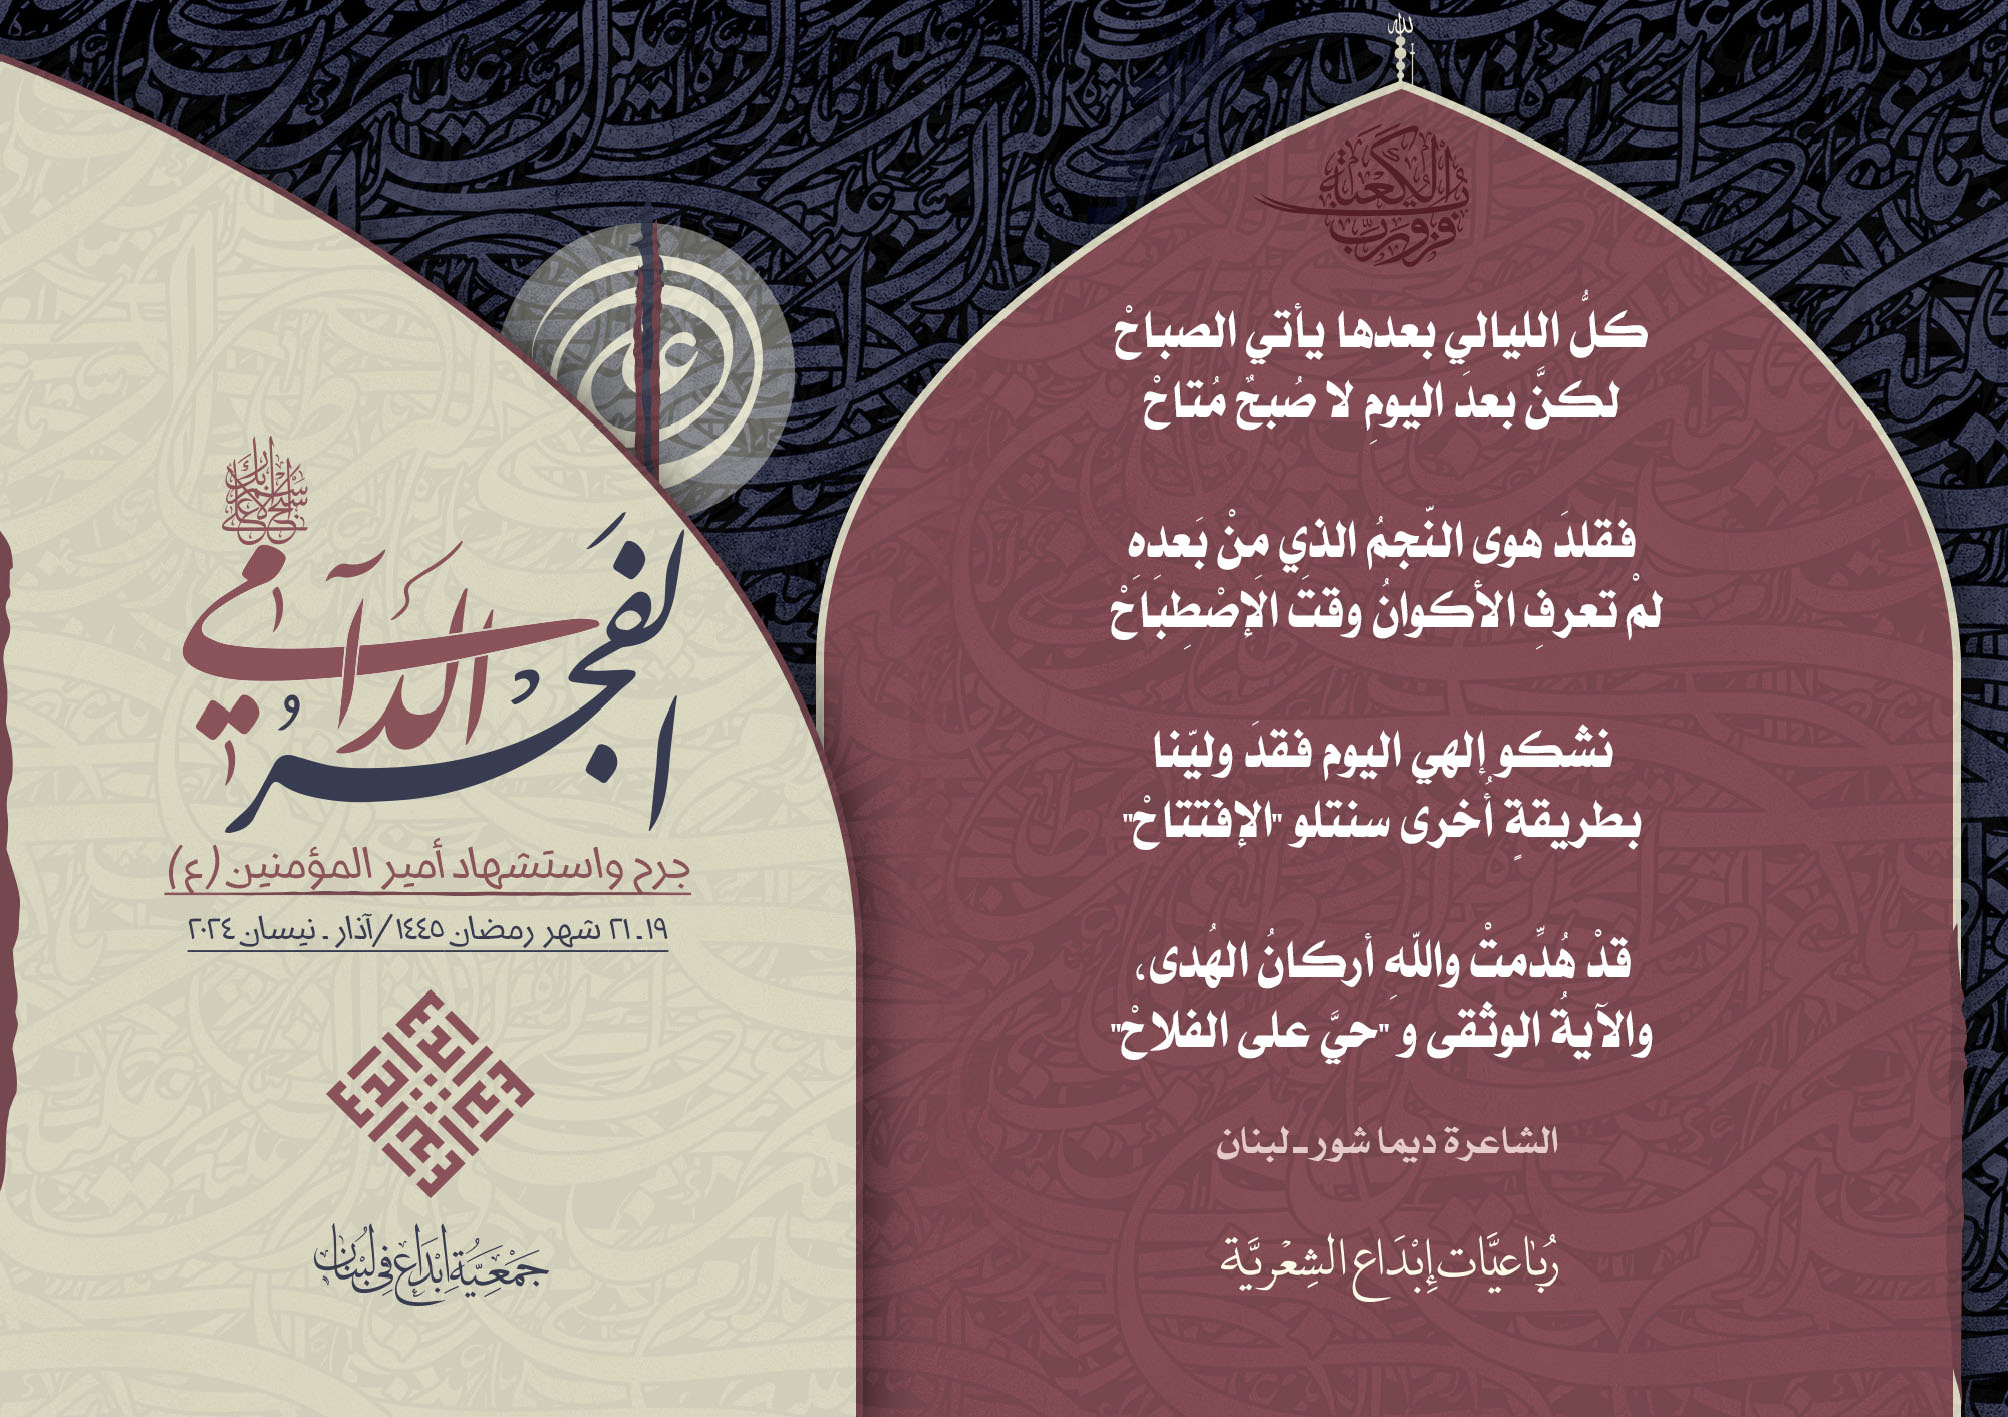 لله
فزت ورب الكعبة
كلُّ الليالي بعدها يأتي الصباحْ
لكنَّ بعدَ اليومِ لا صُبحٌ مُتاحْ
فقلدَ هوى النّجمُ الذي مِنْ بَعدِه
لمْ تعرفِ الأكوانُ وقتَ الَإصْطِبَاحْ
نشكو إلهي اليوم فقدَ وليّنا
بطريقةٍ أُخرى سنتلو "الإفتتاحْ"
قدْ هُدِّمتْ واللّهِ أركانُ الهُدى،
والآيةُ الوثقى و "حيَّ على الفلاحْ"
الشاعرة ديما شور ـ لبنان
رُبَاعيَّات إِبْدَاع الشِعْريَّة
علي
سبح اسم ربك الأعلى
الفَجرُ الدَّامي
جرح واستشهاد أمير المؤمنين (ع)
١٩ ـ ٢١ شهر رمضان ١٤٤٥ / آذار ـ نيسان ٢٠٢٤
جَمْعِيَّةُ إِبْدَاع فِي لُبْنَان